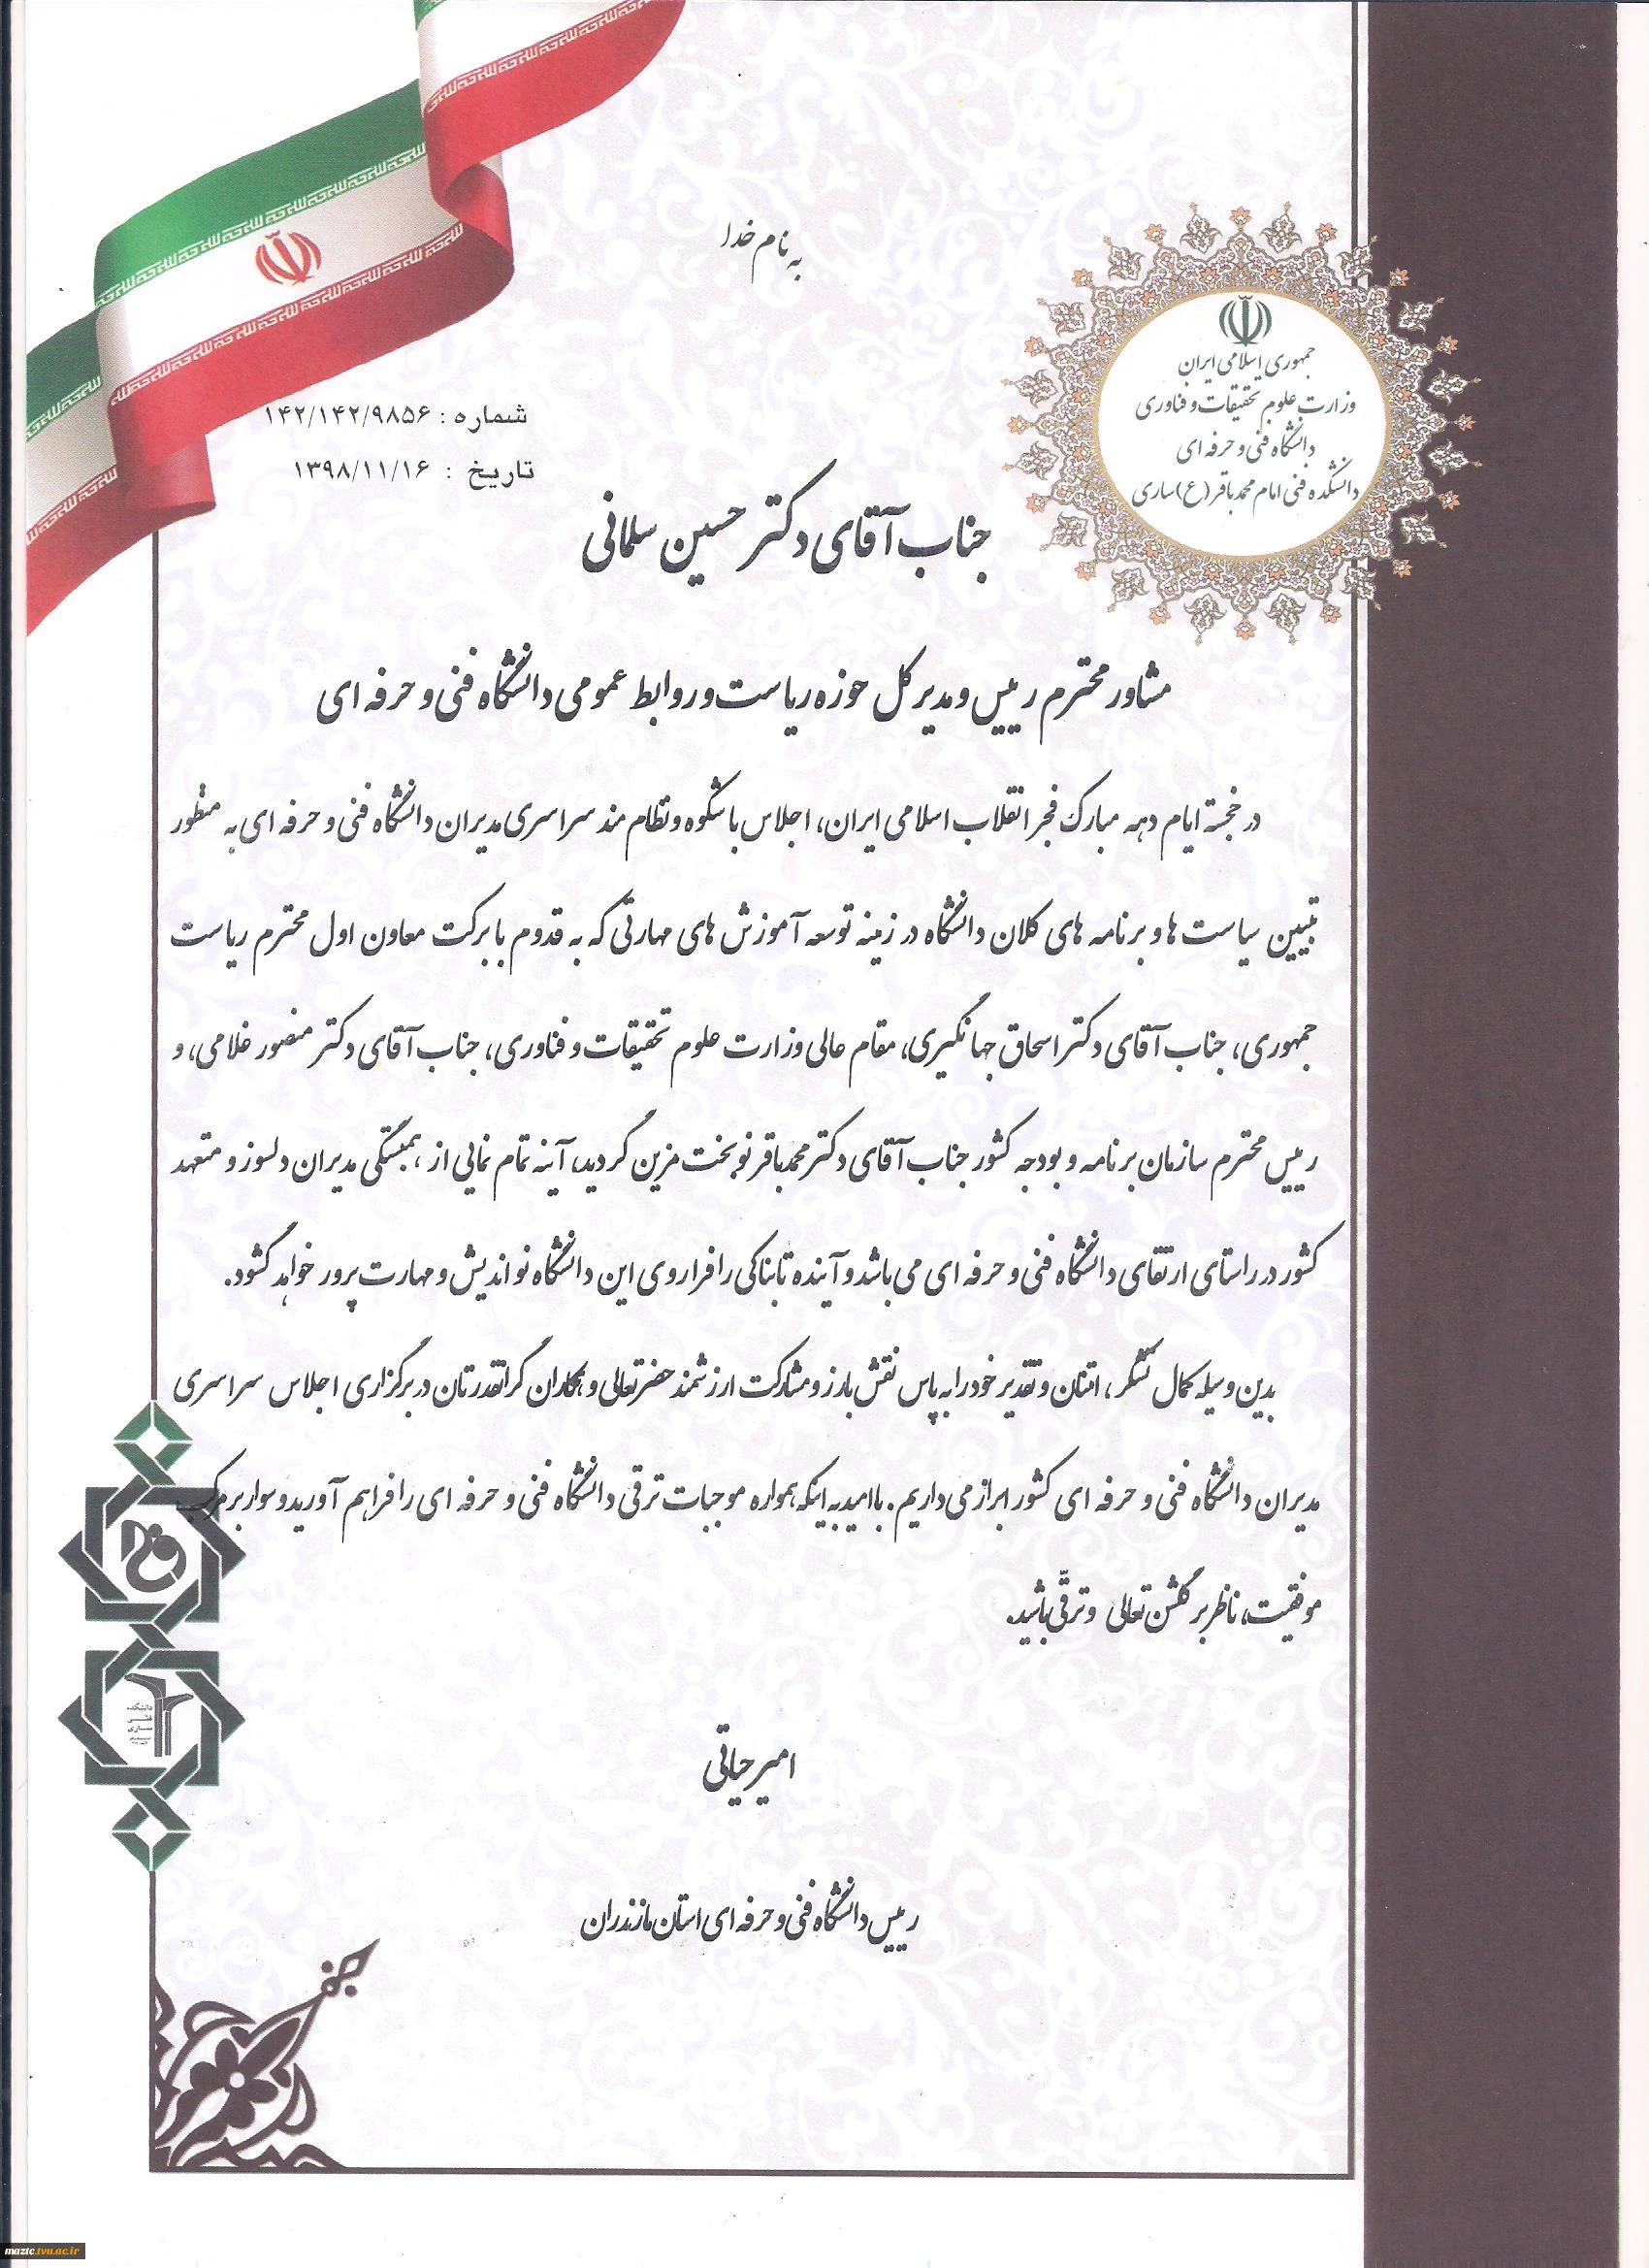 به نام خدا
جمهوری اسلامی ایران
وزارت علوم تحقیقات و فناوری
دانشگاه فنی و حرفه ای
دانشکده فنی امام محمد باقر (ع) ساری
شماره : ۱۴۲/۱۴۲/۹۸۵۶
تاریخ : ۱۳۹۸/۱۱/۱۶
جناب آقای دکتر حسین سلمانی
مشاور محترم رییس و مدیر کل حوزه ریاست و روابط عمومی دانشگاه فنی و حرفه ای
در خجسته ایام دهه مبارک فجر انقلاب اسلامی ایران، اجلاس با شکوه و نظام مند سراسری مدیران دانشگاه فنی و حرفه ای به منظور
تبیین سیاست ها و برنامه های کلان دانشگاه در زمینه توسعه آموزش های مهارتی که به قدوم با برکت معاون اول محترم ریاست
جمهوری، جناب آقای دکتر اسحاق جهانگیری، مقام عالی وزارت علوم تحقیقات و فناوری، جناب آقای دکتر منصور غلامی، و
رییس محترم سازمان برنامه و بودجه کشور جناب آقای دکتر محمدباقر نوبخت مزین گردید، آینه تمام نمایی از همبستگی مدیران دلسوز و متعهد
کشور در راستای ارتقای دانشگاه فنی و حرفه ای می باشد و آینده تابناکی را فراروی این دانشگاه نو اندیش و مهارت پرور خواهد گشود.
بدین وسیله کمال تشکر، امتنان و تقدیر خود را به پاس نقش بارز و مشارکت ارزشمند حضرتعالی و همکاران گرانقدرتان در برگزاری اجلاس سراسری
مدیران دانشگاه فنی و حرفه ای کشور ابراز می داریم. با امید به اینکه همواره موجبات ترقی دانشگاه فنی و حرفه ای را فراهم آورید و سوار بر مرکب
موفقیت، ناظر بر گلشن تعالی و ترقّی باشید.
امیر حیاتی
رییس دانشگاه فنی و حرفه ای استان مازندران
maztc.tvu.ac.ir